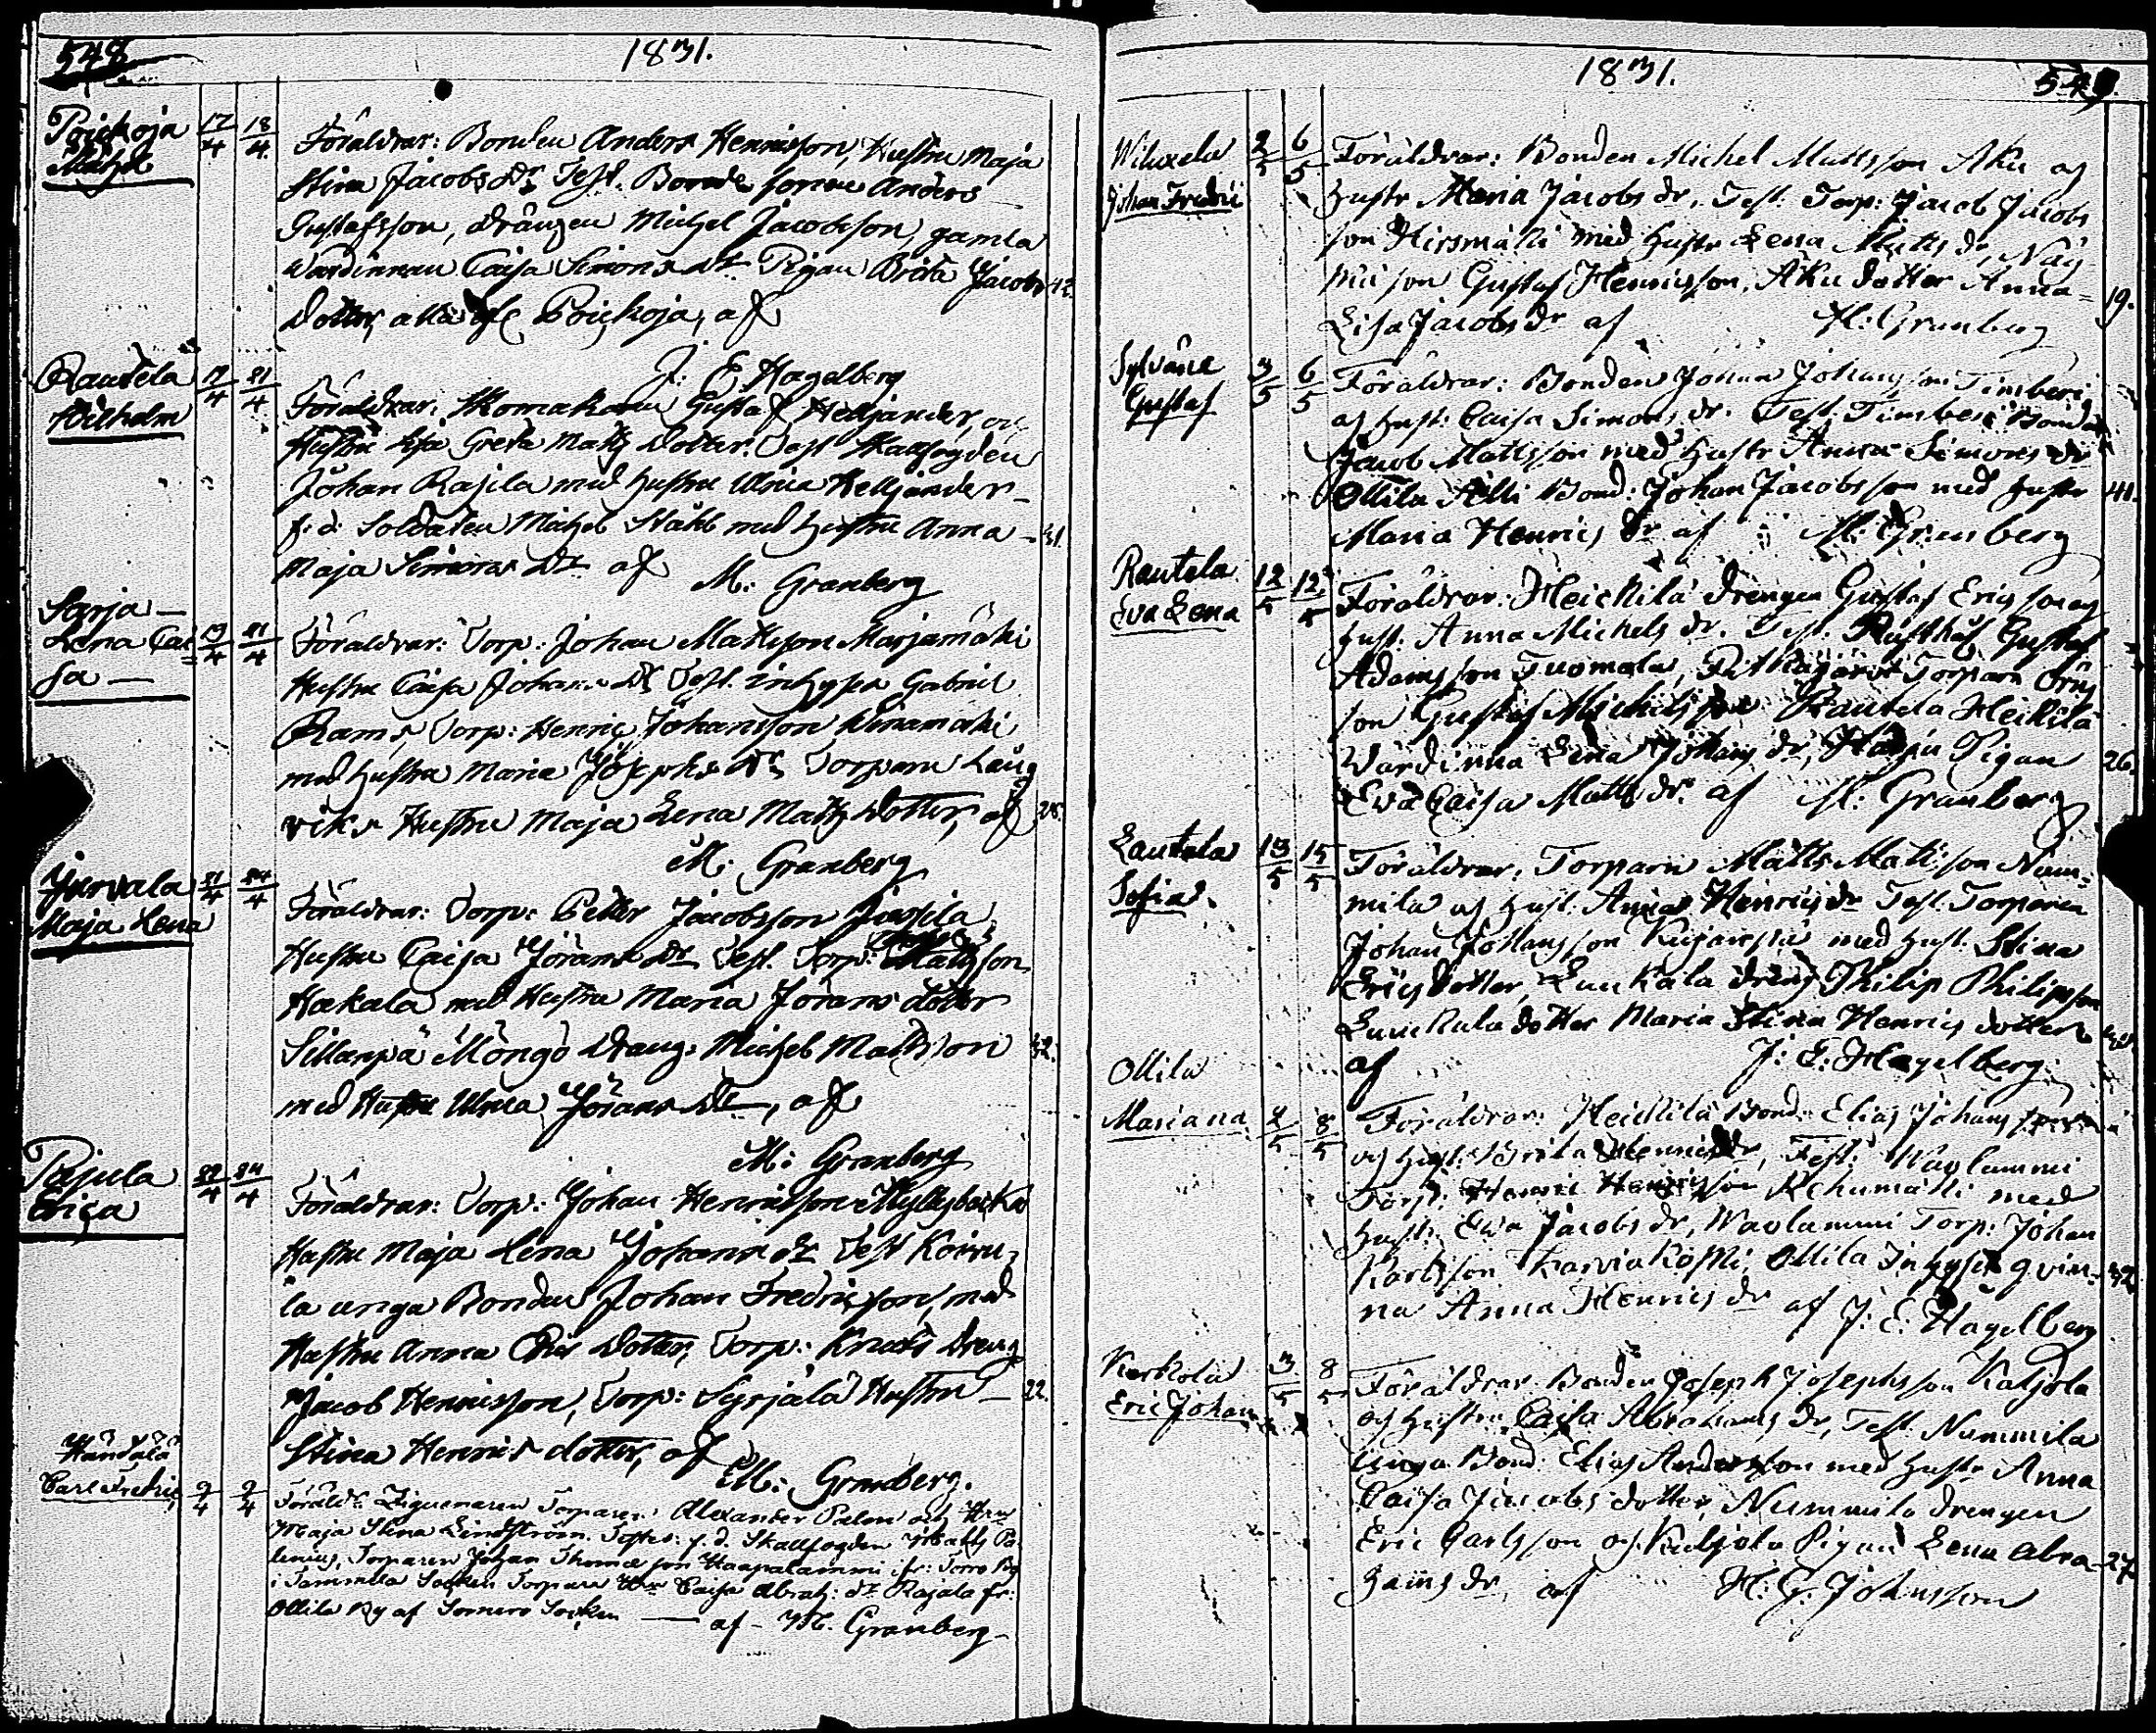 548
1831.
Poickoja 17/4 18/4 Föräldrar: Bonden Anders Henricsson, Hustru Maja
Michel
Stina Jacobs Dr Test. Bonde sonen Anders
Gustafsson, Drängen Michel Jacobsson, gamla
Wärdinnan Caisa Simons Dr Pigan Brita Jacobs 42.
Dotter, alla af Poickoja, af
J: E Hagelberg
Rautela 17/4 21/4 Föräldrar: Skomakaren Gustaf Helljander, och
Wilhelm
Hustru Greta Matts Dotter. Test Skallfogden
Johan Rajila med hustru Ulrica Helljander
f: d: Soldaten Michel Ståhl med hustru Anna 31.
Maja Simons Dr af M: Granberg
Sarja
Lena Cai 19/4 21/4 Föräldrar: Torp: Johan Mattsson Marjamäki
sa
Hustru Caisa Johans Dr Test. inhyses Gabriel
Ram, Torp: Henric Johansson
med hustru Maria Josephs Dr, Torparn Lång
viks Hustru Maja Lena Matts Dotter, af 28.
M: Granberg
Jurvala 21/4 24/4 Föräldrar: Torp: Petter Jacobsson Jussila
Maja Lena
Hustru Caisa Jörans Dr Test. Torp: son
Hakala med Hustru Maria Jörans dotter
Sillanpä Möngö Dräng: Michel Mattsson 32.
med Hustru Ulrica Jörans Dr, af
M: Granberg
Pajula 22/4 24/4 Föräldrar: Torp: Johan Henricsson Myllybacka
Erica
Hustru Maja Lena Johans dr Test Koivu,
la unga Bonden Johan Fredricsson, med
Hustru Anna Eric Dotter, Torp: Knuts Dreng
Jacob Henricsson, Torp: Syrjälä Hustru 22.
Stina Henrics dotter, af
M: Granberg.
Händälä
Carl Fredric 2/4 9/4 Föräld: Ziguenaren Torparen Alexander Palen och Hru
Maja Stina Lindström. Testes: f. d. Skallfogden Matts Pa
lenius, Torparen Johan Thomasson Haapalammi ifr: Torro By
i Tammela Socken Torpare Hru Caisa Abrah: dr Rajala fr:
Ollila By af Somero Socken — af M. Granberg
1831.
549.
Wiluxela 2/5 6/5 Föräldrar: Bonden Michel Mattsson Aku og
Johan Fredric
Hustr Maria Jacobs dr. Test. Torp: Jacob Jacobs
son Hirsmäki med hustr Lena Matts dr, Näy
son Gustaf Henricsson, Aku dotter Anna 19.
Lisa Jacobs dr af M: Granberg
Sylväne 3/5 6/5 Föräldrar: Bonden Johan Johansson Timberi
Gustaf
og hust: Caisa Simons dr. Test. Timberi Bonden
Jacob Mattsson med hustr Anna Simons dr
Ollila Bond: Johan Jacobsson med hustr 41.
Maria Henrics dr af M: Granberg
Rautela 12/5 12/5 Föräldrar: Heickilä Drengen Gustaf Ericsson og
Eva Lena
hust. Anna Michels dr. Test. Rusthåll Gustaf
Adamsson Tuomola, Pitkäjärvi Torparn Örns
son Gustaf Michelsson Rautela Heikkilä
Värdinna Lena Johans dr, Pigan 26.
Eva Caisa Matts dr. af M: Granberg
Lautala 13/5 15/5 Föräldrar, Torparn Matts Mattsson Num-
Sofia.
mila og hust. Anna Henrics dr Test. Torparen
Johan Johansson Kujanpä med hust. Stina
Erics Dotter, Luukala dreng Philip Philipsson
Luukala dotter Maria Stina Henrics dotter
af J: E: Hagelberg
Ollila
Mariana 2/5 8/5 Föräldrar: Heickilä Bond: Elias Johansson
og hust. Brita Henrics dr, Test. Waulammi
Torp: Henric Henricsson Rehumäki med
hustr: Eva Jacobs dr, Waulammi Torp: Johan
Karlsson Karviakoski, Ollila Inhyses qvin- 32
na Anna Henrics dr af J: E: Hagelberg
Kerkola 3/5 8/5 Föräldrar Bonden Joseph Josephsson Katjola
Eric Johan
og hustru Caisa Abrahams dr, Test. Nummila
unga Bond: Elias Andersson med hustr Anna
Caisa Jacobs dotter, Nummila drengen
Eric Carlsson og Katjola Pigan Lena Abra 27.
hams dr, af H: G: Johansson